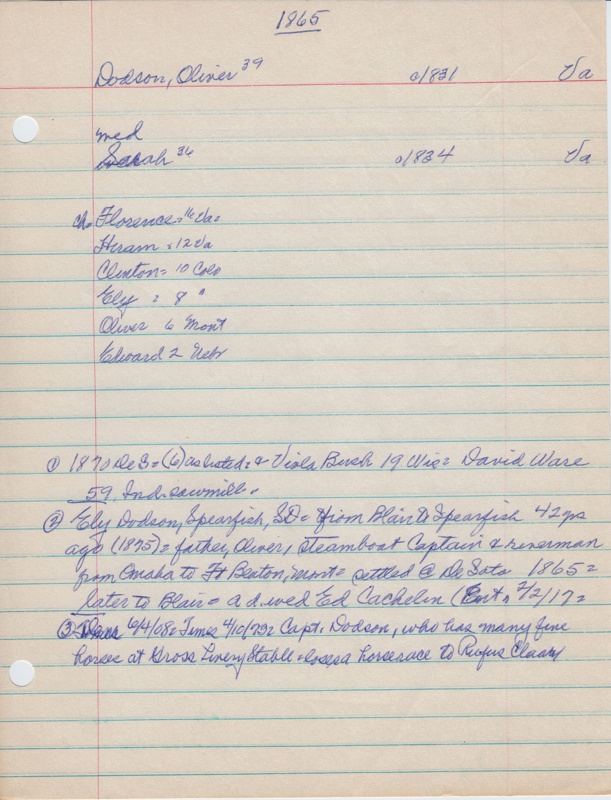 1865
Dodson, Oliver 39 c/1831 Va
med
Sarah 36 c/1834 Va
ch. Florence = 16 Va =
Hiram = 12 Va
Clinton = 10 Colo
Ely = 8 "
Oliver 6 Mont
Edward 2 Nebr
① 1870 De S = (6) as listed = & Viola Bush 19 Wis = David Ware
59, Ind. sawmill =
② Ely Dodson, Spearfish, SD = from Blair to Spearfish 42 yrs
ago (1875) = father, Oliver, Steamboat Captain & riverman
from Omaha to Ft Benton, Mont = settled @ De Soto 1865 =
later to Blair = a d. wed Ed Cachelin (Ent. 2/2/17 =
③ 6/4/08 = Times 4/10/73 = Capt. Dodson, who has many fine
horses at Gross Livery Stable = loses a horserace to Rufus